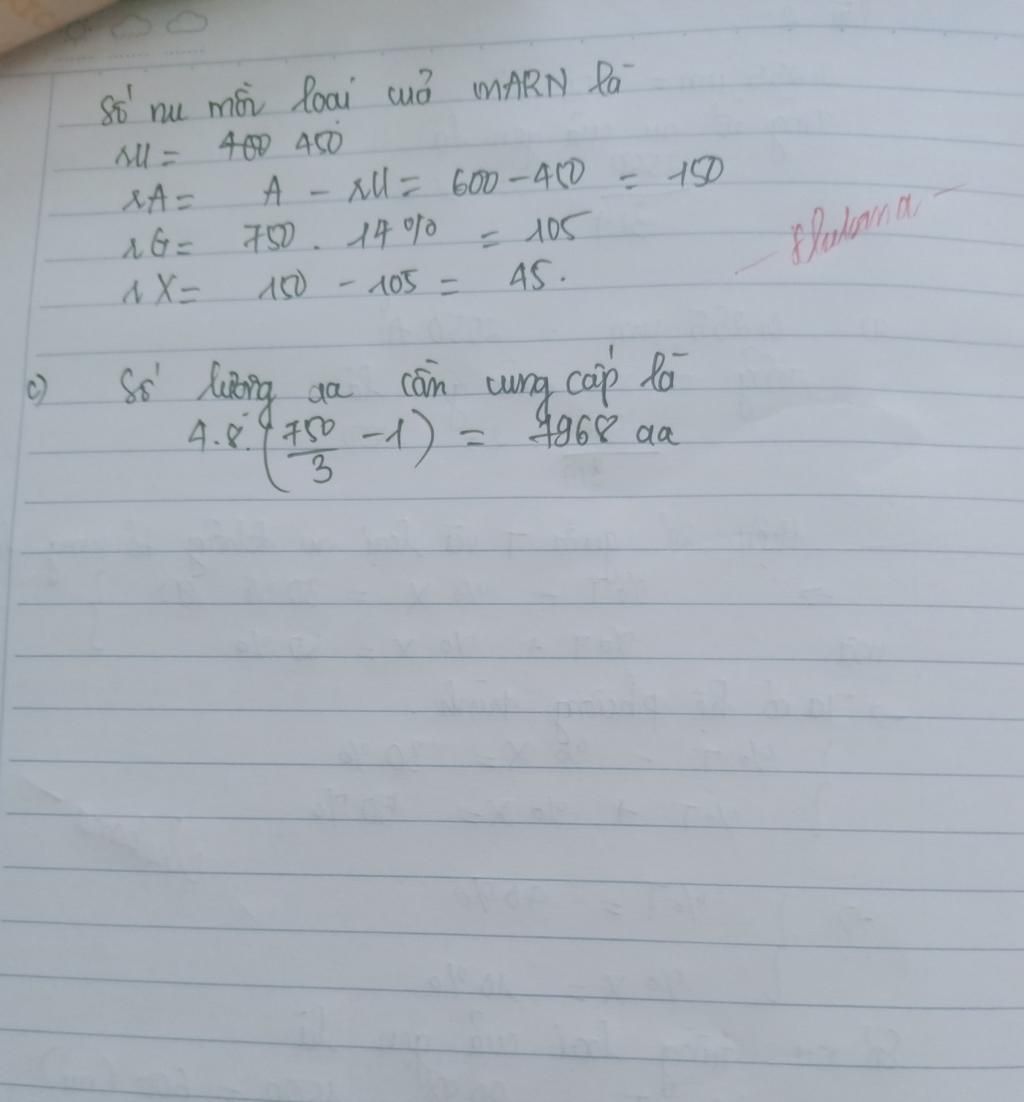 Số nu mỗi loại cuả mARN là
rU = 450
rA = A - rU = 600 - 450 = 150
rG = 750 . 14% = 105
rX = 150 - 105 = 45.
c) Số lượng aa cần cung cấp là
4.8.(750/3 - 1) = 7968 aa